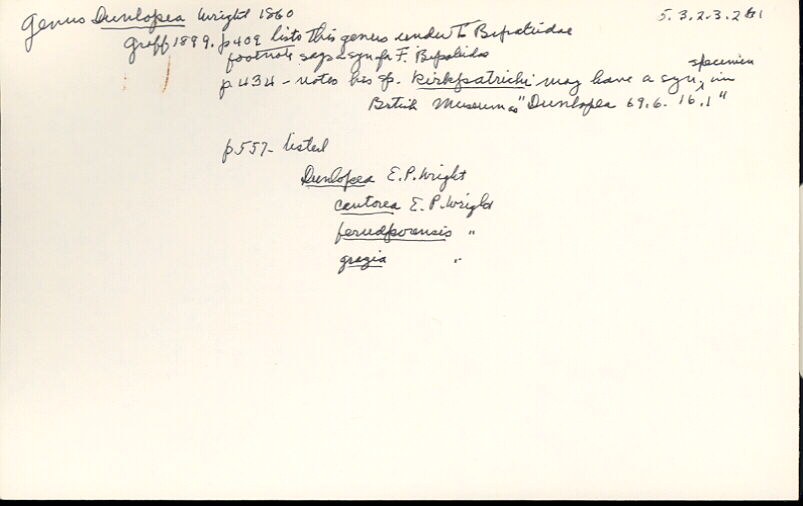 Genus Dunlopea Wright 1860 5.3.2.3.2
Graff 1899. p409 lists this genus under Bipaliidae
footnote says syn for F. Bipaliidae
p434 - notes his sp. Kirkpatricki may have a syn, specimen in
British Museum as "Dunlopea 69.6.16.1"
p557- listed
Dunlopea E.P. Wright
cantorea E.P. Wright
ferudpoorensis "
grazia "